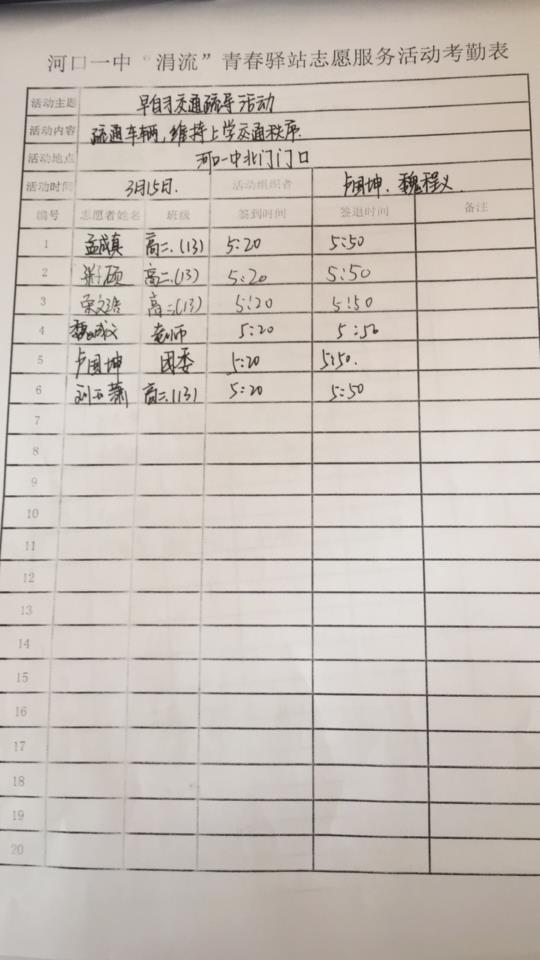 河口一中“涓流”青春驿站志愿服务活动考勤表
活动主题 早自习交通疏导活动
活动内容 疏通车辆,维持上学交通秩序.
活动地点 河口一中北门门口
活动时间 3月15日. 活动组织者 卢国坤.魏程义.
编号 志愿者姓名 班级 签到时间 签退时间 备注
1 孟成真 高二.(13) 5:20 5:50
2 张硕 高二.(13) 5:20 5:50
3 荣文浩 高二(13) 5:20 5:50
4 老师 5:20 5:50
5 卢国坤 团委 5:20 5:50.
6 高二.(13) 5:20 5:50
7
8
9
10
11
12
13
14
15
16
17
18
19
20